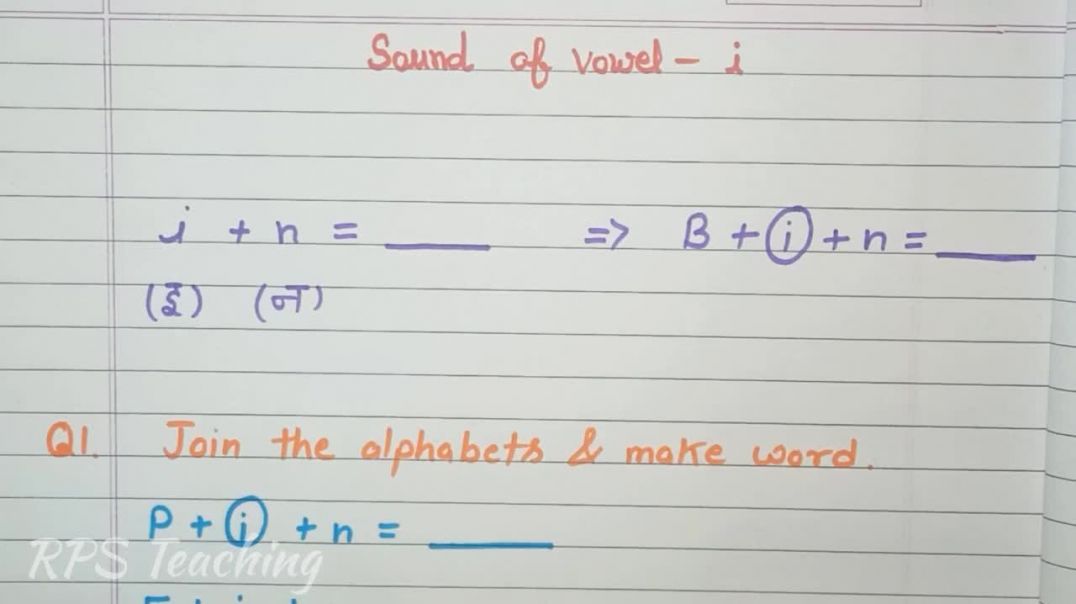 Sound of vowel - i
i + n = ____ => B + i + n = ____
(इ) (न)
Q1. Join the alphabets & make word.
P + i + n = ____
RPS Teaching